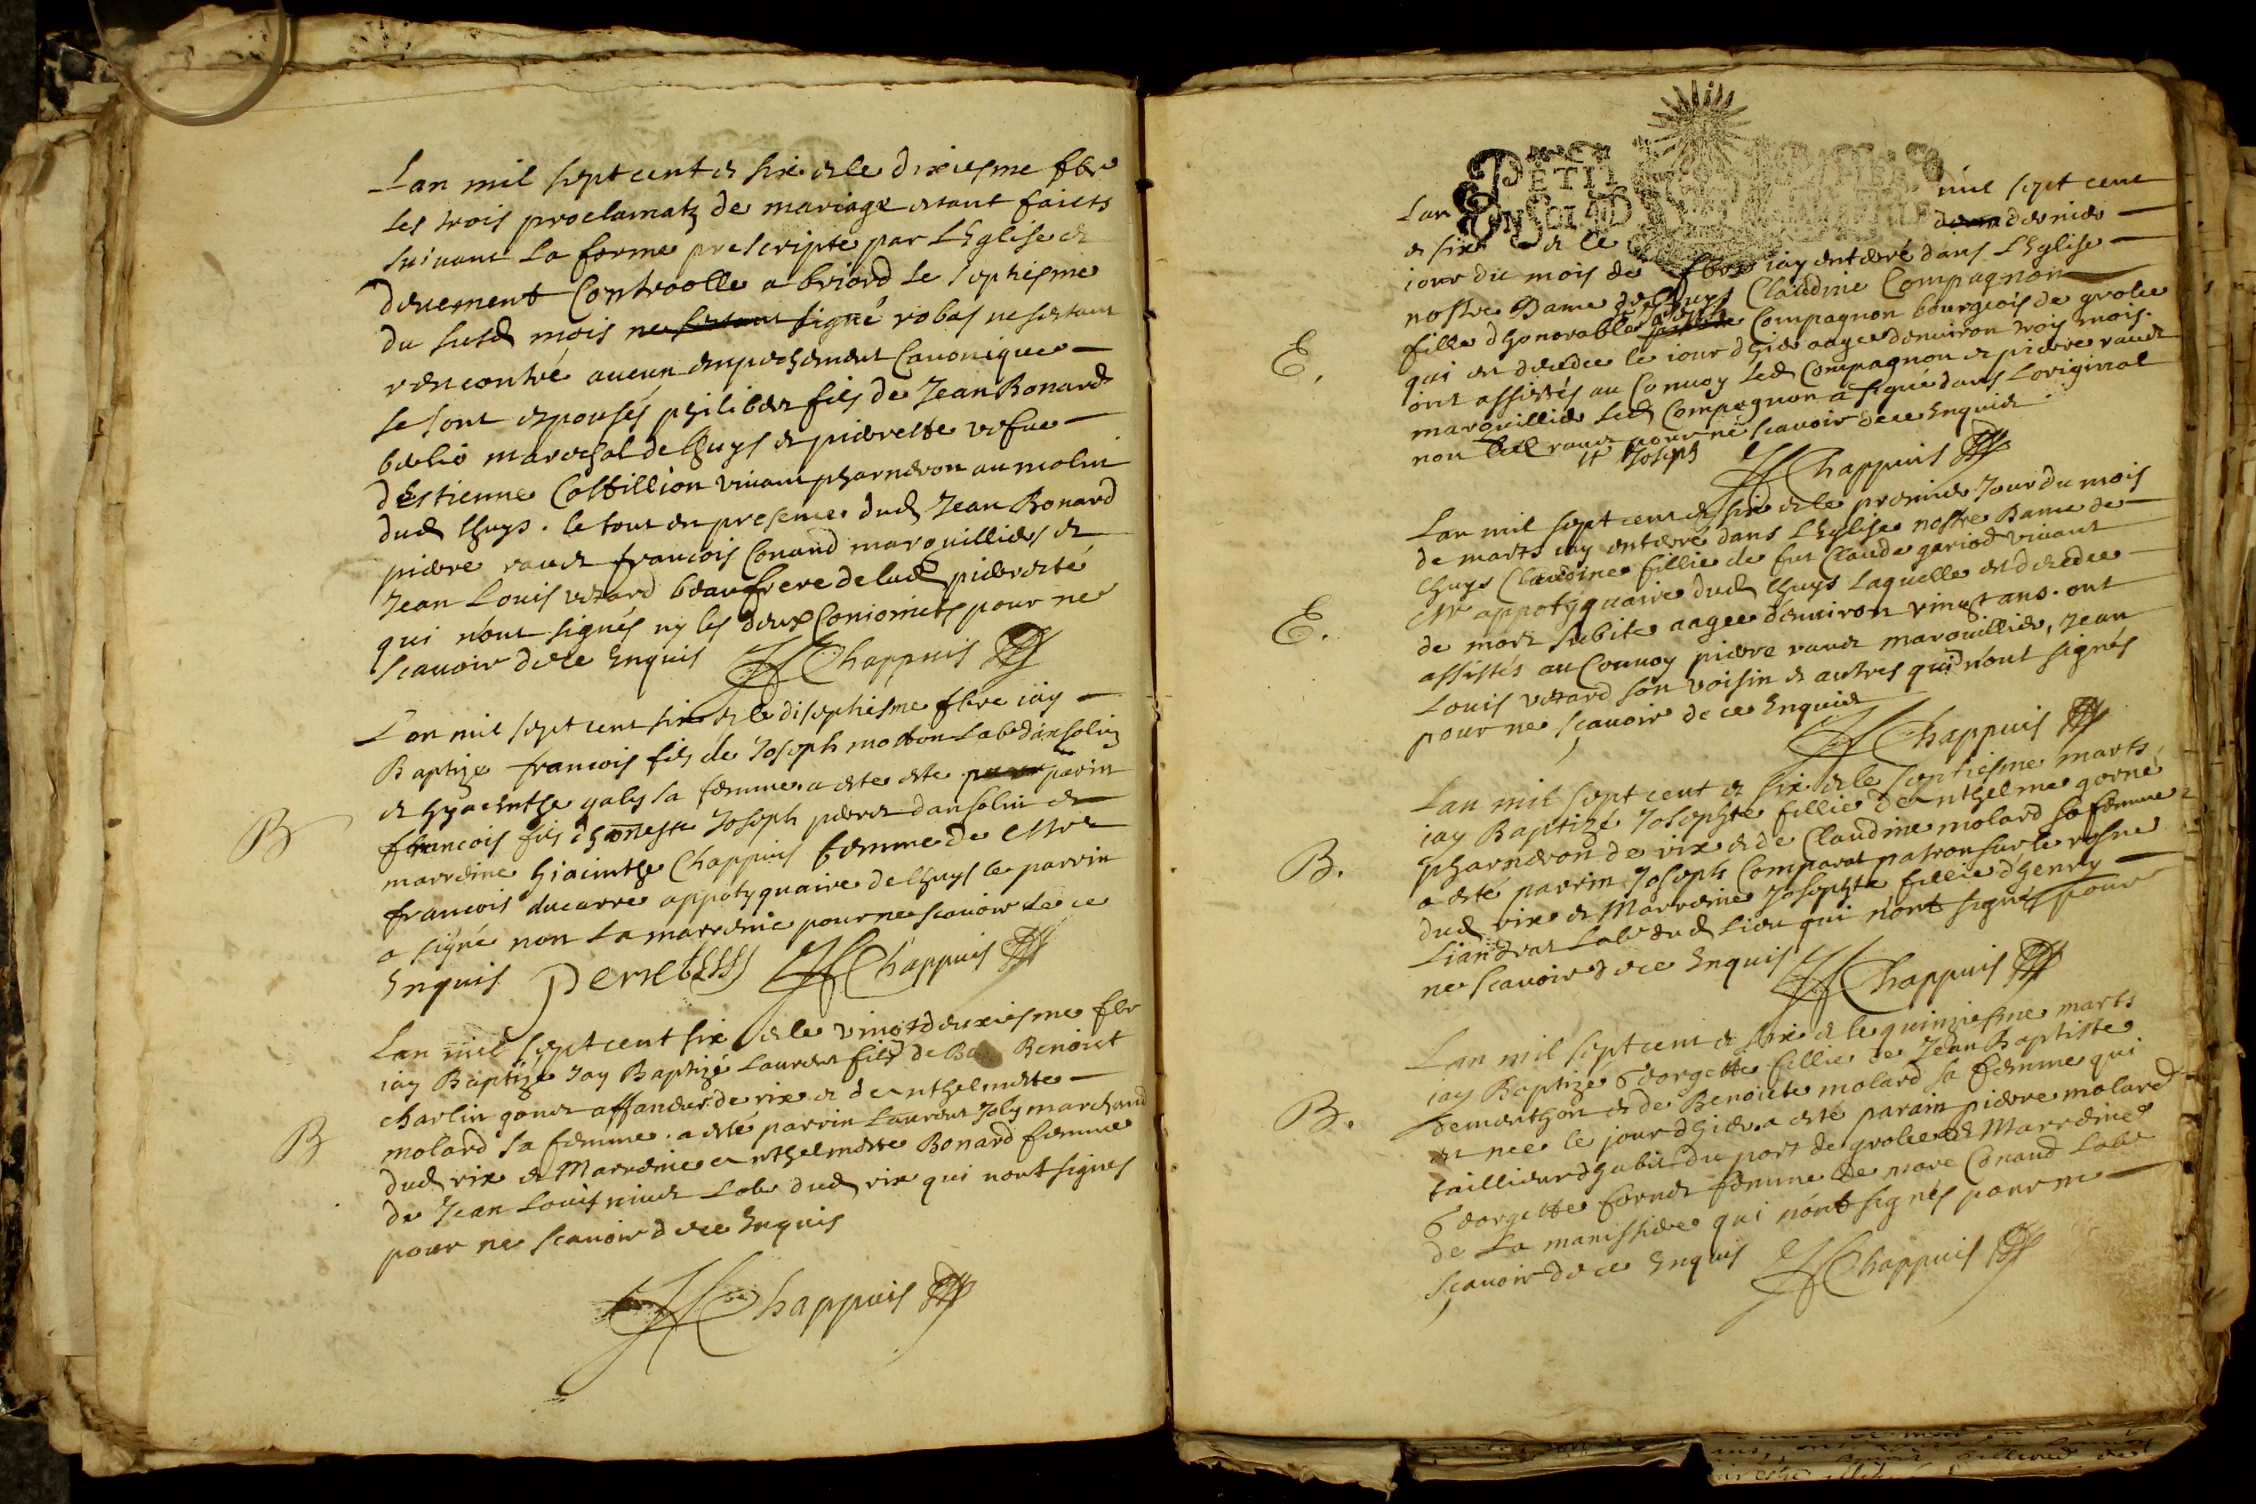 Lan mil sept cent & six & le dixiesme fbre
les trois proclamatz de mariage estant faicts
suivant la forme prescripte par LEglise &
deuement Controolle a briord le septiesme
du susd mois ne sestant signé robas ne sestant
rencontré aucun empeschement Canonique
se sont espousés philibert fils de Jean Bonard
marechal de lhuys & pierrette vefue
dEstienne Cottillion vivant au molin
dud lhuys. le tout en presence dud Jean Bonard
pierre ravet francois Conand marguilliers &
Jean Louis vetard beaufrere de lad pierrette
qui nont signés ny les deux Conioincts pour ne
scavoir de ce Enquis Chappuis
Lan mil sept cent six & le diseptiesme fbre iay
Baptize francois fils de Joseph motton Lab dansolin
& hyacinthe galy sa femme a este este parin
francois fils dhoneste Joseph perret dansolin &
marreine hiacinthe Chappuis femme de Mre
francois ducarre appotyquaire de lhuys le parrin
a signé non la marreine pour ne scavoir de ce
Enquis Perret Chappuis
B
Lan mil sept cent six & le vingtdeuxiesme fbr
iay Baptize Jay Baptizé Laurent fils de Benoict
charlin gonet affaneur de rix & de anthelmette
molard sa femme. a esté parrin Laurent Joly marchand
dud rix & Marreine anthelmette Bonard femme
de Jean Louis nivet Lab dud rix qui nont signes
pour ne scavoir de ce Enquis
B
Chappuis
PETIT
Lan mil sept cent
& six & le dernier
iour du mois de fbre iay enterré dans LEglise
nostre Dame de lhuys Claudine Compagnon
fille dhonorable Compagnon bourgeois de grolee
qui est decedee le iour dhier aagee denviron trois mois.
E.
ont assistés au Convoy led Compagnon & pierre ravet
marguillier led Compagnon a signé dans Loriginal
non led ravet pour ne scavoir de ce Enquis
Joseph Chappuis
Lan mil sept cent & six & le premier Jour du mois
de marts iay enterré dans LEglise nostre Dame de
lhuys Claudine fillie de fut Claude gariod vivant
Mre appotyquaire dud lhuys Laquelle est decedee
E.
de mort subite aagee denviron vingt ans. ont
assistés au Convoy pierre ravet marguillier, Jean
Louis vetard son voisin & autres qui nont signés
pour ne scavoir de ce Enquis
Chappuis
Lan mil sept cent & six & le septiesme marts
iay Baptizé Josephte fillie de anthelme gorné
de rix & de Claudine molard sa femme
B.
a esté parrin Joseph Comparat patron sur le rosne
dud rix & Marreine Josephte fillie dhenry
Liandrat Lab dud lieu qui nont signés pour
ne scavoir de ce Enquis Chappuis
Lan mil sept cent & six & le quinziesme marts
iay Baptizé Georgette fillie de Jean Baptiste
Demonthon & de Benoicte molard sa femme qui
B.
est nee le jour dhier a esté parain pierre molard
taillieur dhabit du port de grolee & Marreine
Georgette fornet femme de marc Conand Lab
de La manissiere qui nont signés pour ne
scavoir de ce Enquis Chappuis